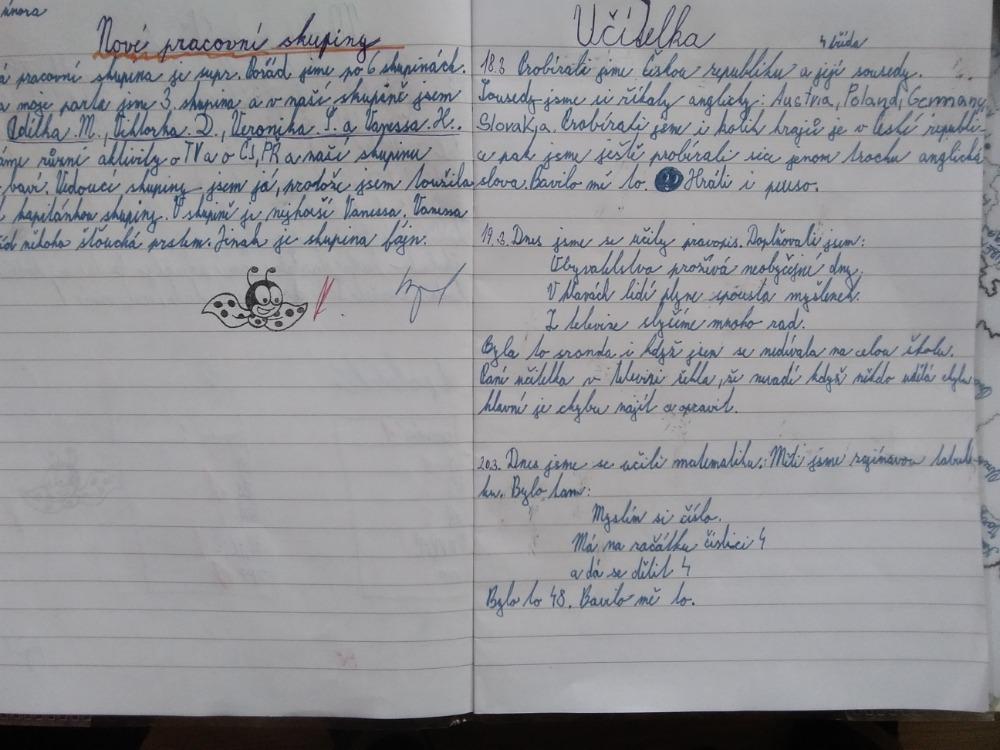 února
Nové pracovní skupiny
á pracovní skupina je supr. Pořád jsme po 6 skupinách.
a moje parta jsme 3. skupina a v naší skupině jsem
Editka M., Viktorka D., Veronika Š. a Vanessa H..
áme různí aktivity o TV a o ČJ, PR a naší skupinu
baví. Vidoucí skupiny jsem já, protože jsem toužila
kapitánkou skupiny. V skupině je nejhorší Vanessa. Vanessa
někoho šťouchá prstem. Jinak je skupina fajn.
Učitelka
4 třída
18.3. Probírali jsme Českou republiku a její sousedy.
Sousedy jsme si říkaly anglicky: Austria, Poland, Germany,
Slovakja. Probírali jsem i kolik krajů je v České republi-
a pak jsme ještě probírali sice jenom trochu anglická
slova. Bavilo mě to. Hráli i pexeso.
19.3. Dnes jsme se učily pravopis. Doplňovali jsem:
Obyvatelstvo prožívá neobyčejné dny.
V hlavách lidí plyne spousta myšlenek.
Z televize slyšíme mnoho rad.
Byla to sranda i když jsem se nedívala na celou školu.
Paní učitelka v televizi řekla, že nevadí když někdo udělá chybu
hlavní je chybu najít a opravit.
20.3. Dnes jsme se učili matematiku. Měli jsme zajímavou tabul-
ku. Bylo tam:
Myslím si číslo.
Má na začátku číslici 4
a dá se dělit 4
Bylo to 48. Bavilo mě to.